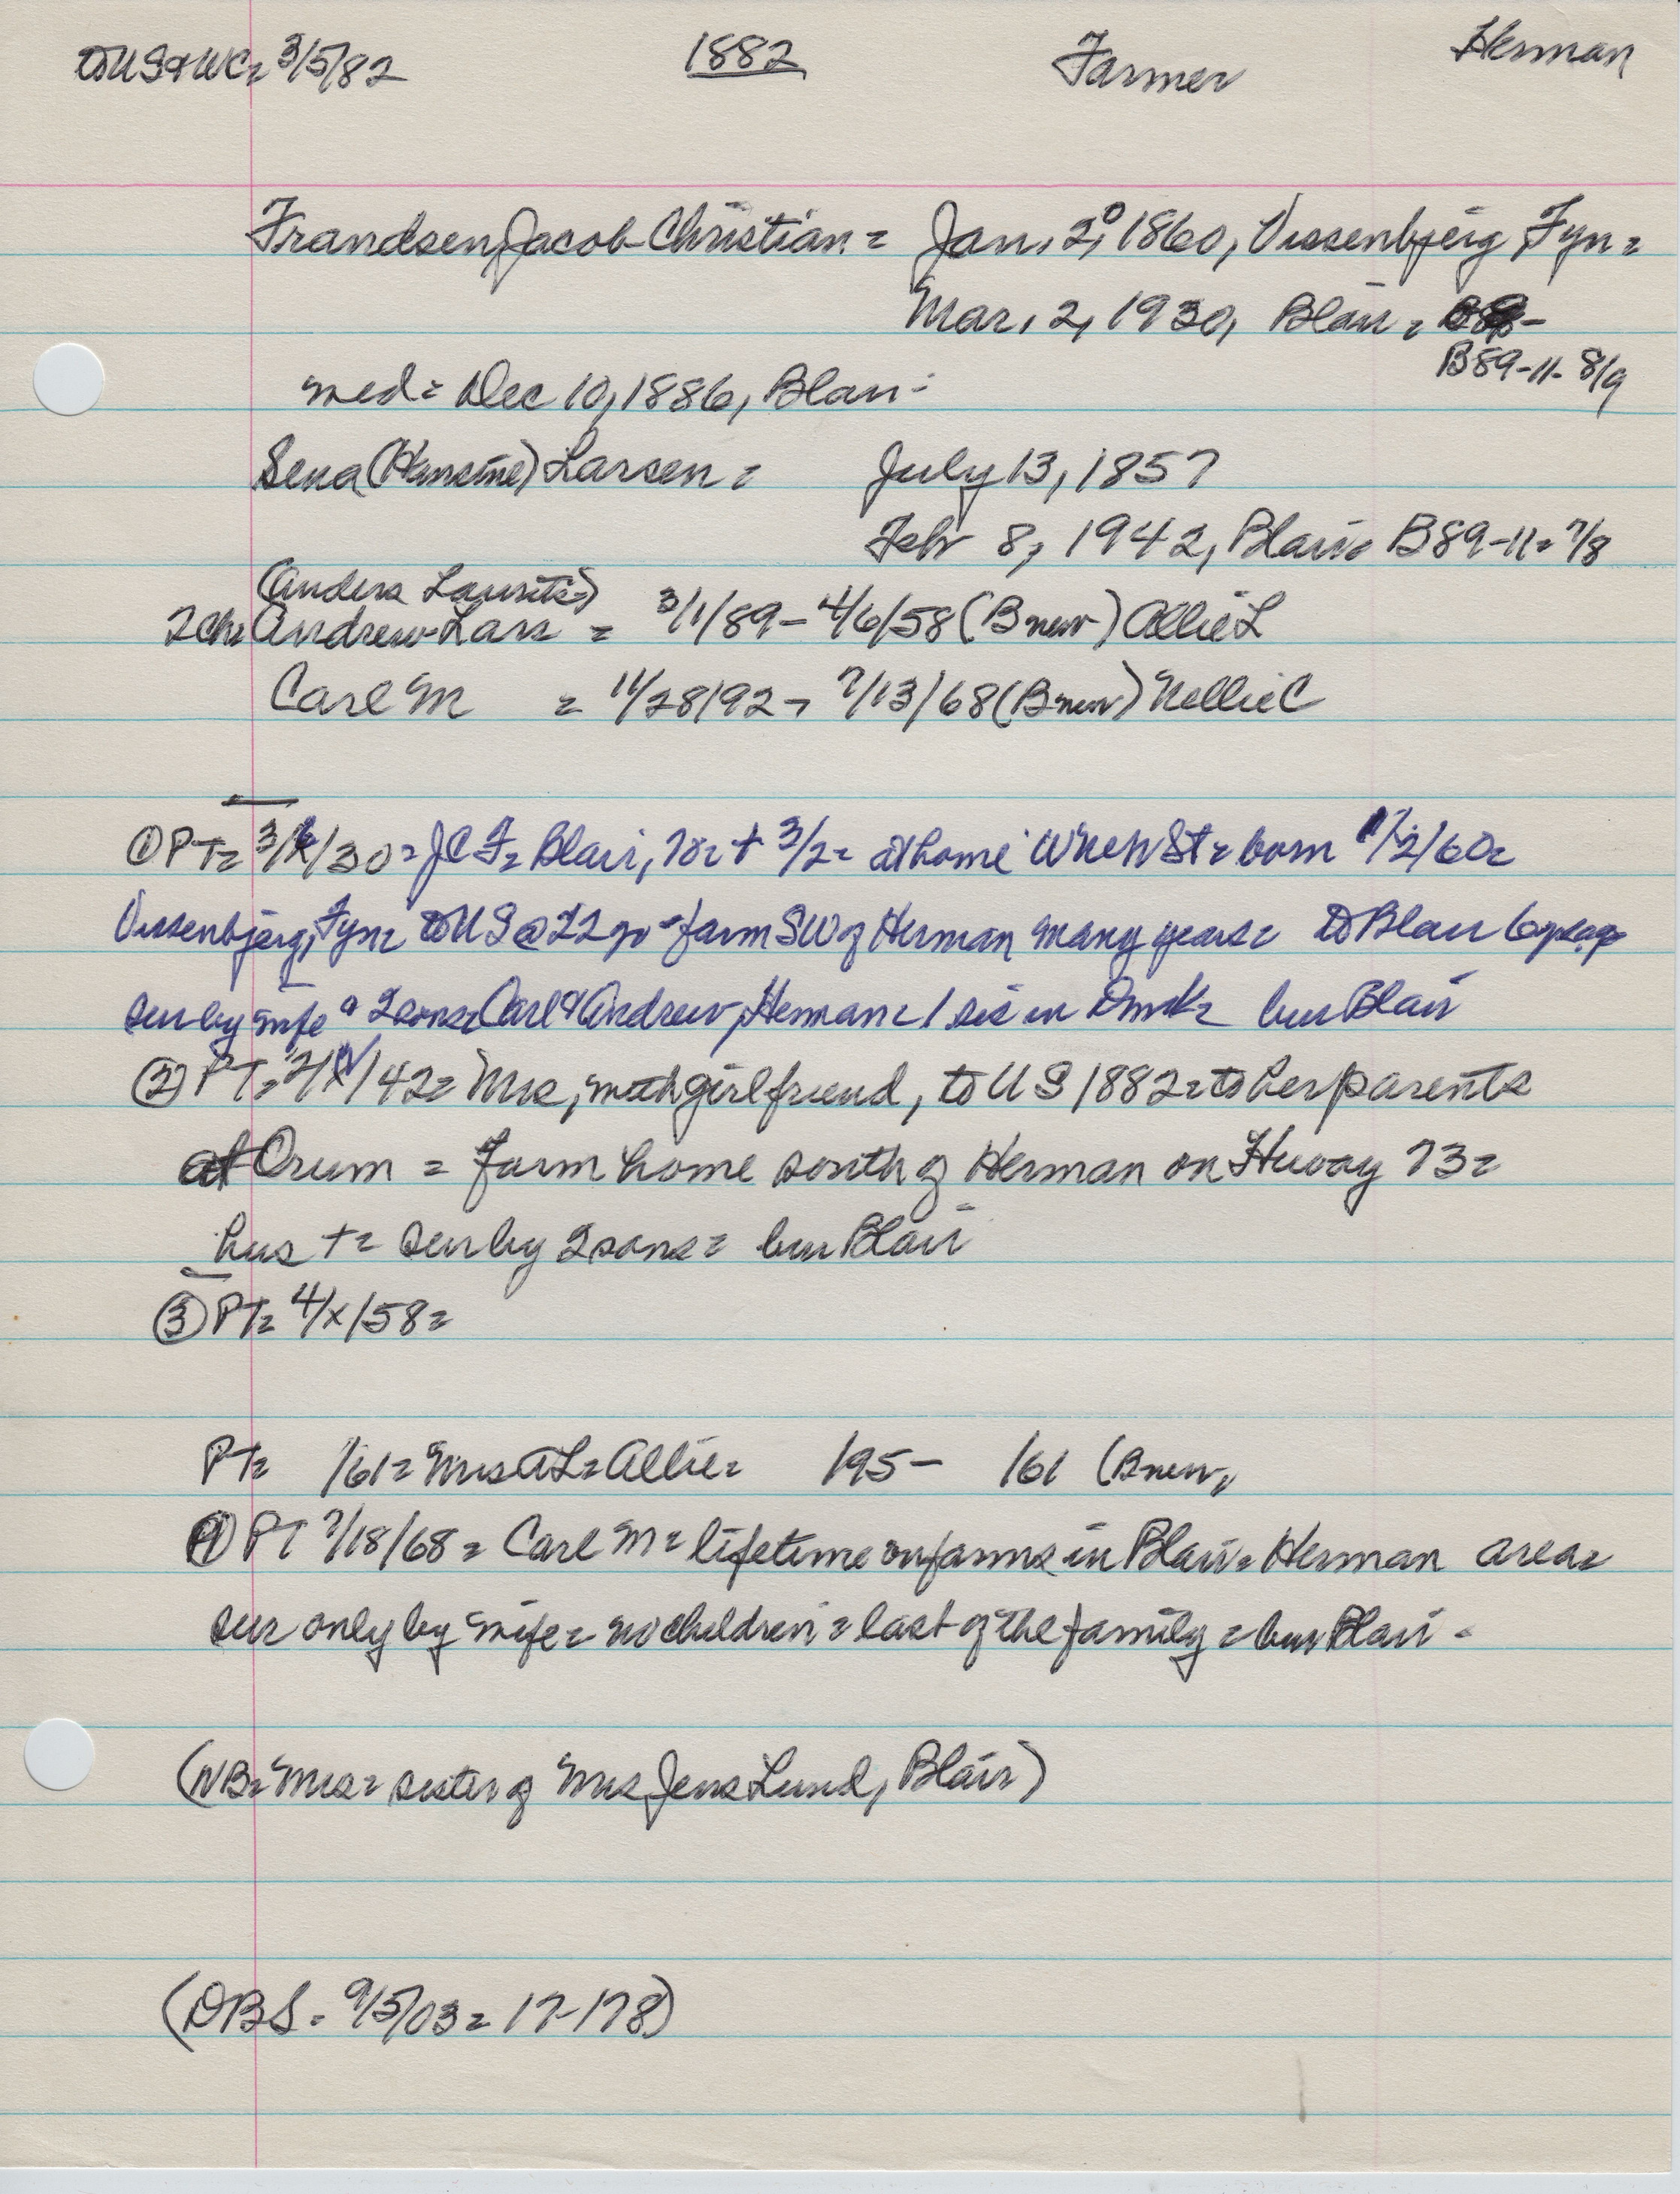 to US & WC = 3/5/82 1882 Farmer Herman
Frandsen, Jacob Christian = Jan, 2, 1860, Vissenbjerg, Fyn =
Mar, 2, 1930, Blair =
B89-11- 8/9
med = Dec 10, 1886, Blair -
Sena (Hansine) Larsen = July 13, 1857
Febr 8, 1942, Blair = B89-11 = 7/8
(Anders Laurits)
2 ch = Andrew Lars = 3/1/89 - 4/6/58 (B new) Allie L
Carl M = 11/28/92 - 7/13/68 (B new) Nellie C
① PT = 3/ /30 = J C F = Blair, 70 = + 3/2 = at home W St = born 1/2/60 =
Vissenbjerg, Fyn = to US @ 22 yr = farm SW of Herman many years = to Blair 6 yrs ago
sur by wife & 2 sons = Carl & Andrew, Herman = 1 sis in Dmk = bur Blair
② PT = 2/ /42 = Mrs, with girl friend, to US 1882 = to her parents
at Orum = farm home south of Herman on Hiway 73 =
hus + = sur by 2 sons = bur Blair
③ PT = 4/x/58 =
PT = /61 = Mrs A L = Allie = 195 - 161 (B new,
④ PT 7/18/68 = Carl M = lifetime on farms in Blair = Herman area =
sur only by wife = no children = last of the family = bur Blair -
(NB = Mrs = sister of Mrs Jens Lund, Blair)
(DBS - 9/5/03 = 17-178)